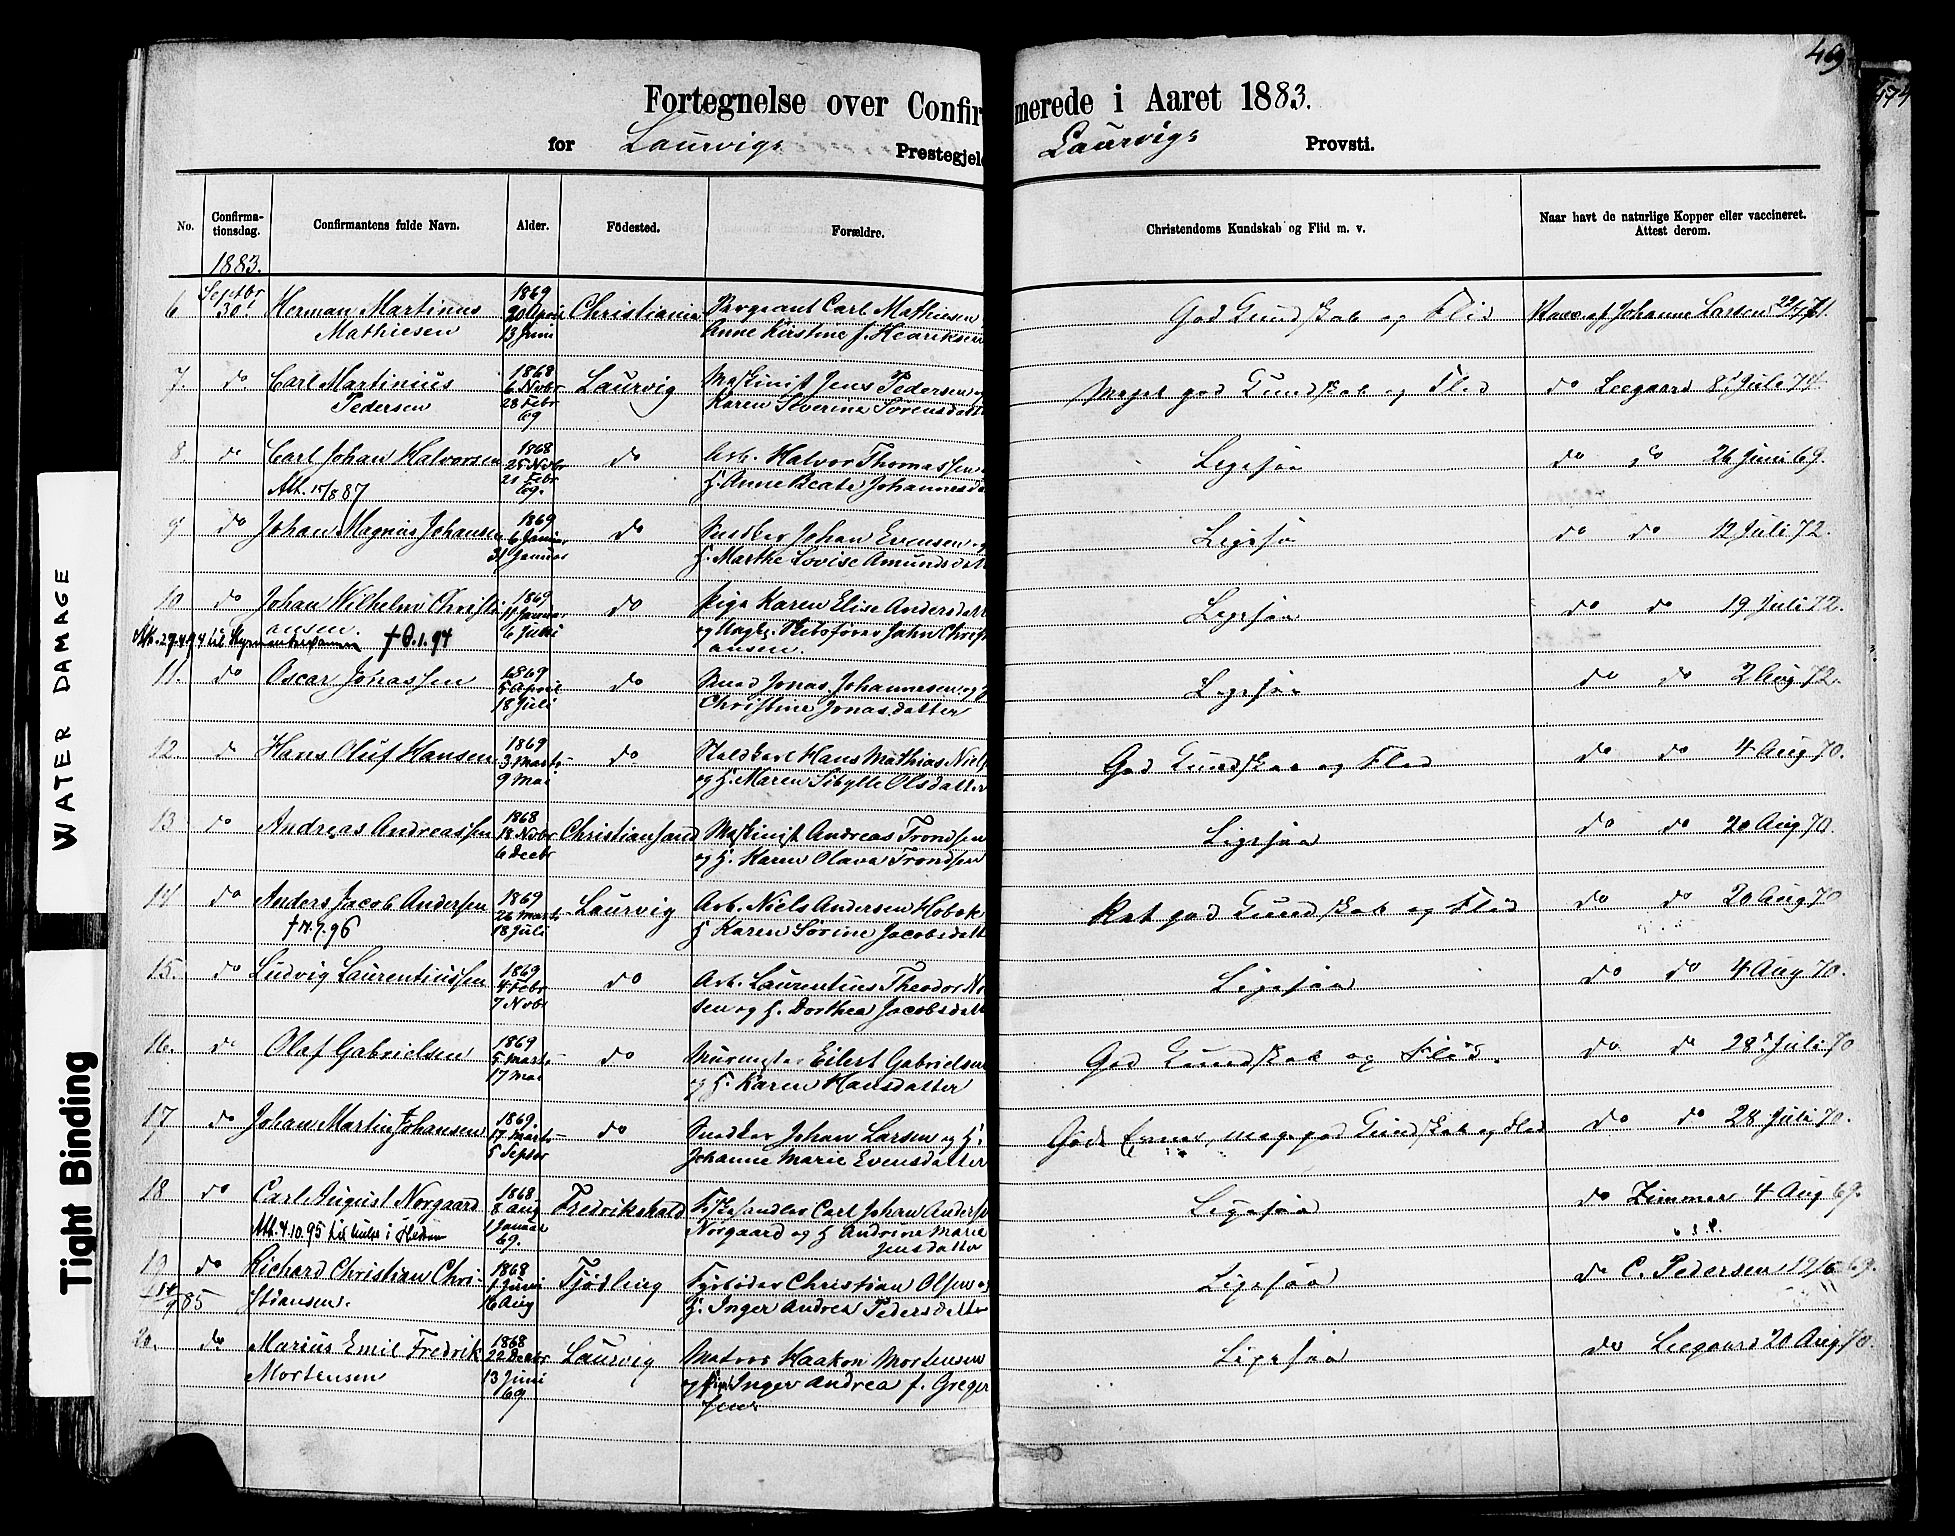 469
474
Fortegnelse over Confirmerede i Aaret 1883.
for Laurvigs Prestegjeld Laurvigs Provsti.
No. Confirmationsdag. Confirmantens fulde Navn. Alder. Födested. Forældre. Christendoms Kundskab og Flid m. v. Naar havt de naturlige Kopper eller vaccineret. Attest derom.
1883.
6 Septbr 30 Herman Martinus 1869 20 April Christiania Sergeant Carl Mathiesen God Kundskab og Flid Vacc. af Johanne Larsen 22/7 71.
Mathiesen 13 Juni Anne Kirstine f. Henriksen
7. do Carl Martinius 1868 6 Novbr Laurvig Maskinist Jens Pedersen Meget god Kundskab og Flid do Leegaard 8 Juli 74.
Pedersen 28 Febr 69 Karen Severine Sörensdatt
8. do Carl Johan Halvorsen 1868 25 Novbr do Arb. Halvor Thomassen Ligesaa do do 26 Juni 69.
Att. 15/8 87 21 Febr 69. H. Anne Beate Johannesda
9 do Johan Magnus Johansen 1869 6 Januar do Snedker Johan Evensen og Ligesaa do do 12 Juli 72.
31 Januar H. Marthe Lovise Amundsdatt
10 do Johan Wilhelm Christi- 1869 11 Januar do Pige Karen Elise Andersdatt Ligesaa do do 19 Juli 72.
ansen. 6 Juni og Ungk. Skibsförer John Christ
Att. 29.4.94 til Styrmandsexamen † 6.1.97 ansen.
11. do Oscar Jonassen 1869 5 April do Smed Jonas Johannesen og Ligesaa do do 2 Aug 72.
18 Juli Christine Jonasdatter
12. do Hans Oluf Hansen 1869 3 Marts do Staldkarl Hans Mathias Niels God Kundskab og Flid do do 4 Aug 70.
9 Mai og H. Maren Sibylle Olsdatter
13 do Andreas Andreassen 1868 18 Novbr Christiansand Maskinist Andreas Trondsen Ligesaa do do 20 Aug 70.
6 Decbr og H. Karen Olava Trondsen
14 do Anders Jacob Andersen 1869 26 Marts Laurvig Arb. Niels Andersen Hobek Ret god Kundskab og Flid do do 20 Aug 70
18 Juli H Karen Sorine Jacobsdatt
15. do Ludvig Laurentiussen 1869 4 Febr do Arb. Laurentius Theodor Ni Ligesaa do do 4 Aug 70.
7 Novbr sen og H. Dorthea Jacobsdatt
16. do Olaf Gabrielsen 1869 5 Marts do Murmester Eilert Gabrielsen God Kundskab og Flid. do do 28 Juli 70
17 Mai og H. Karen Hansdatter
17 do Johan Martin Johansen 1869. 17 Marts do Snedker Johan Larsen og H. Gode Evner, meget god Kundskab og Flid do do 28 Juli 70.
5 Septbr Johanne Marie Evensdatter
18 do Carl August Norgaard 1868 8 Aug Fredrikshald Fiskehandler Carl Johan Anders Ligesaa do Zimmer 4 Aug 69.
Att. 4.10.95 til 1 Januar 69. Norgaard og H Andrine Marie
Jensdatter
19. do Richard Christian Chri- 1868 1 Juni Tjödling Fyrböder Christian Olsen og Ligesaa do C. Pedersen 19/6 69.
85 stiansen. 16 Aug H. Inger Andrea Pedersdatter
20. do Marius Emil Fredrik 1868 22 Decbr Laurvig Matros Haakon Mortensen Ligesaa do Leegaard 20 Aug 70.
Mortensen 13 Juni 69 og Inger Andrea f. Greger
sen
WATER DAMAGE
Tight Binding